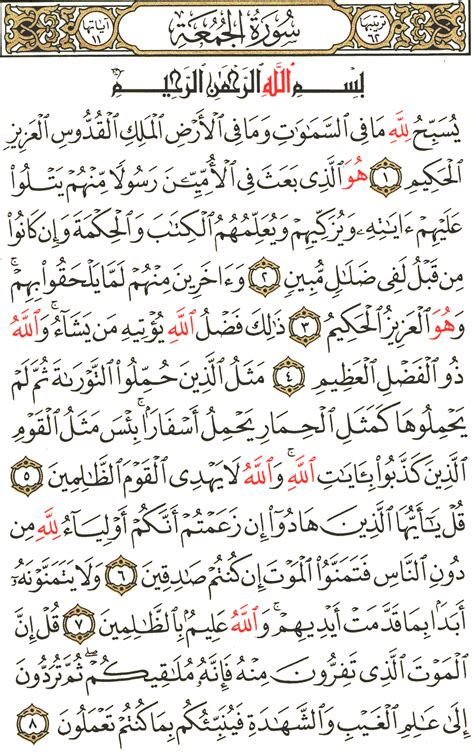 ترتيبها ٦٢ سُورَةُ الجُمُعَة آياتها ١١
بِسْمِ ٱللَّهِ ٱلرَّحْمَٰنِ ٱلرَّحِيمِ
يُسَبِّحُ لِلَّهِ مَا فِى ٱلسَّمَٰوَٰتِ وَمَا فِى ٱلْأَرْضِ ٱلْمَلِكِ ٱلْقُدُّوسِ ٱلْعَزِيزِ
ٱلْحَكِيمِ ١ هُوَ ٱلَّذِى بَعَثَ فِى ٱلْأُمِّيِّـۧنَ رَسُولًا مِّنْهُمْ يَتْلُوا۟
عَلَيْهِمْ ءَايَٰتِهِۦ وَيُزَكِّيهِمْ وَيُعَلِّمُهُمُ ٱلْكِتَٰبَ وَٱلْحِكْمَةَ وَإِن كَانُوا۟
مِن قَبْلُ لَفِى ضَلَٰلٍ مُّبِينٍ ٢ وَءَاخَرِينَ مِنْهُمْ لَمَّا يَلْحَقُوا۟ بِهِمْ ۚ
وَهُوَ ٱلْعَزِيزُ ٱلْحَكِيمُ ٣ ذَٰلِكَ فَضْلُ ٱللَّهِ يُؤْتِيهِ مَن يَشَآءُ ۚ وَٱللَّهُ
ذُو ٱلْفَضْلِ ٱلْعَظِيمِ ٤ مَثَلُ ٱلَّذِينَ حُمِّلُوا۟ ٱلتَّوْرَىٰةَ ثُمَّ لَمْ
يَحْمِلُوهَا كَمَثَلِ ٱلْحِمَارِ يَحْمِلُ أَسْفَارًۢا ۚ بِئْسَ مَثَلُ ٱلْقَوْمِ
ٱلَّذِينَ كَذَّبُوا۟ بِـَٔايَٰتِ ٱللَّهِ ۚ وَٱللَّهُ لَا يَهْدِى ٱلْقَوْمَ ٱلظَّٰلِمِينَ ٥
قُلْ يَٰٓأَيُّهَا ٱلَّذِينَ هَادُوٓا۟ إِن زَعَمْتُمْ أَنَّكُمْ أَوْلِيَآءُ لِلَّهِ مِن
دُونِ ٱلنَّاسِ فَتَمَنَّوُا۟ ٱلْمَوْتَ إِن كُنتُمْ صَٰدِقِينَ ٦ وَلَا يَتَمَنَّوْنَهُۥٓ
أَبَدًۢا بِمَا قَدَّمَتْ أَيْدِيهِمْ ۚ وَٱللَّهُ عَلِيمٌۢ بِٱلظَّٰلِمِينَ ٧ قُلْ إِنَّ
ٱلْمَوْتَ ٱلَّذِى تَفِرُّونَ مِنْهُ فَإِنَّهُۥ مُلَٰقِيكُمْ ۖ ثُمَّ تُرَدُّونَ
إِلَىٰ عَٰلِمِ ٱلْغَيْبِ وَٱلشَّهَٰدَةِ فَيُنَبِّئُكُم بِمَا كُنتُمْ تَعْمَلُونَ ٨